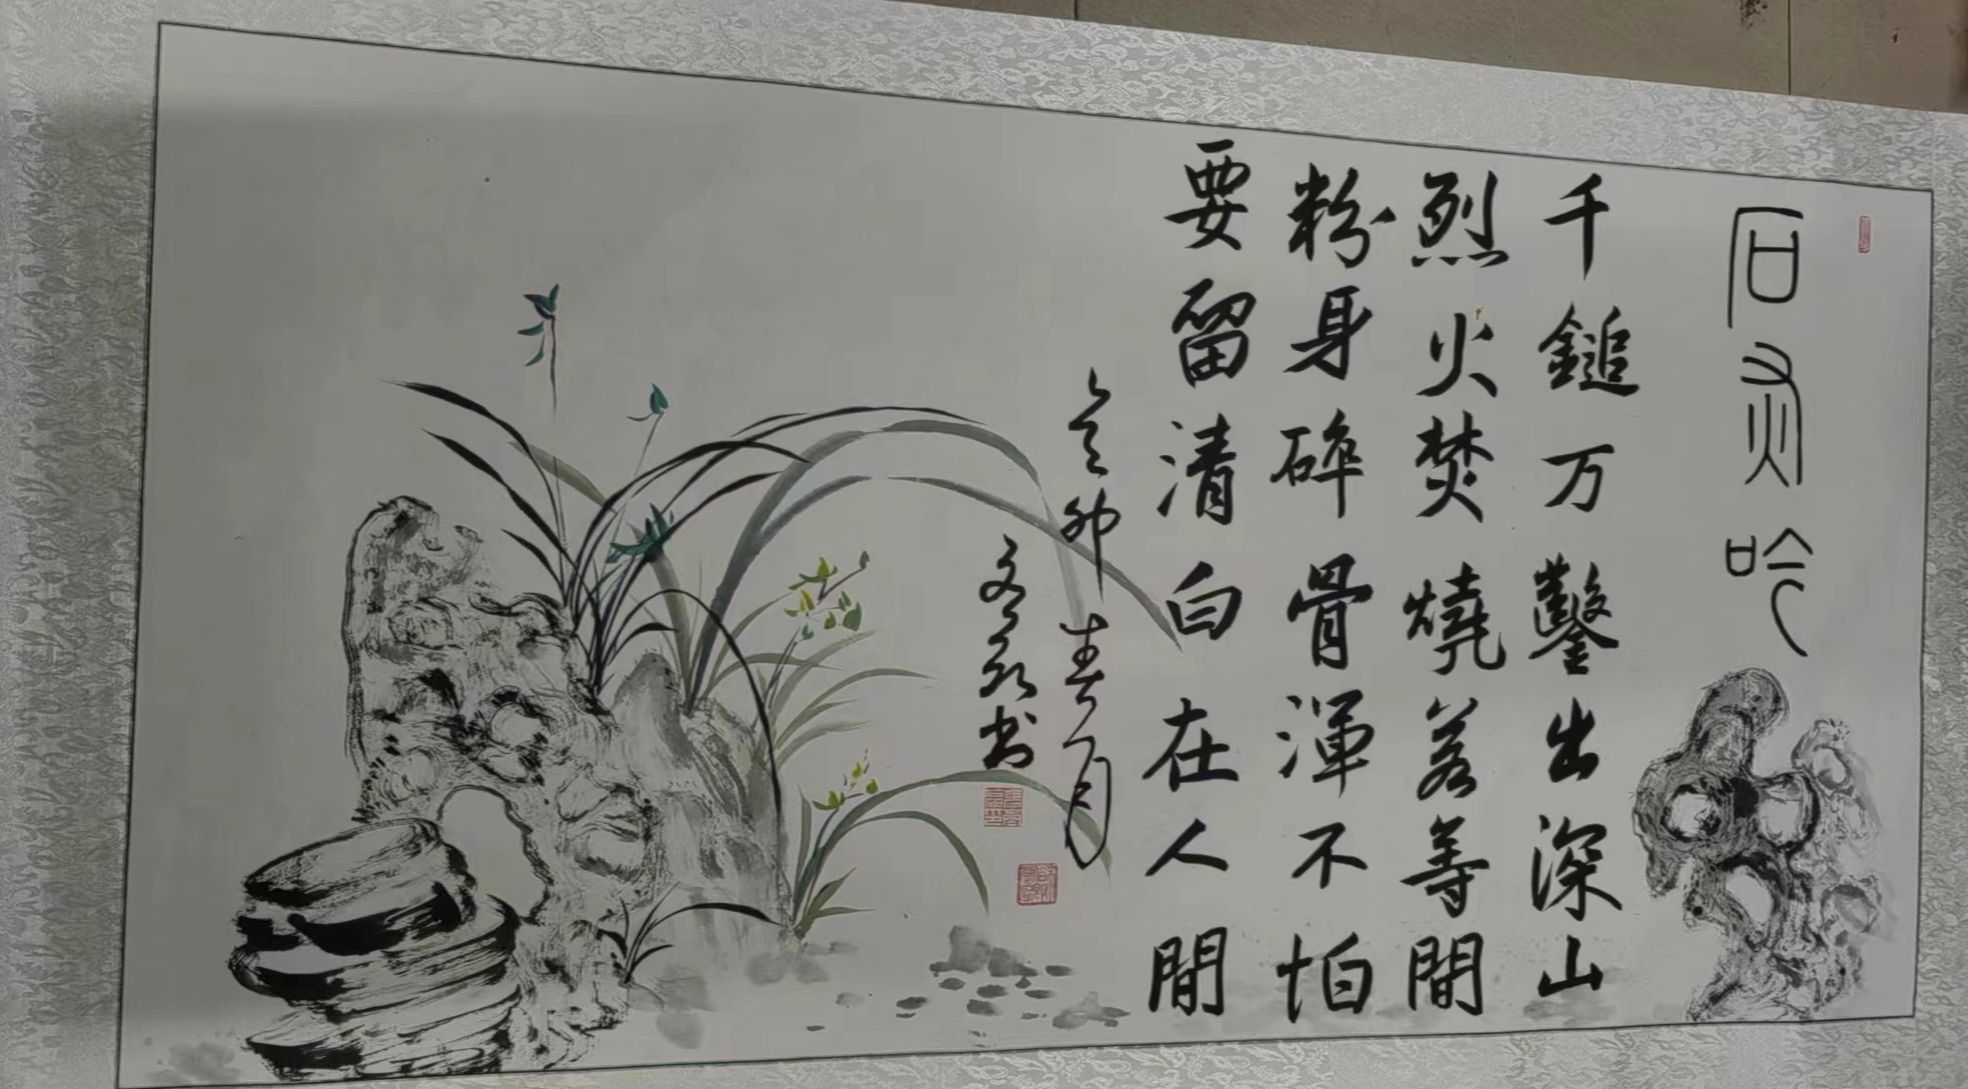 石灰吟
千鎚万鑿出深山
烈火焚燒若等閒
粉身碎骨渾不怕
要留清白在人間
癸卯春月
書